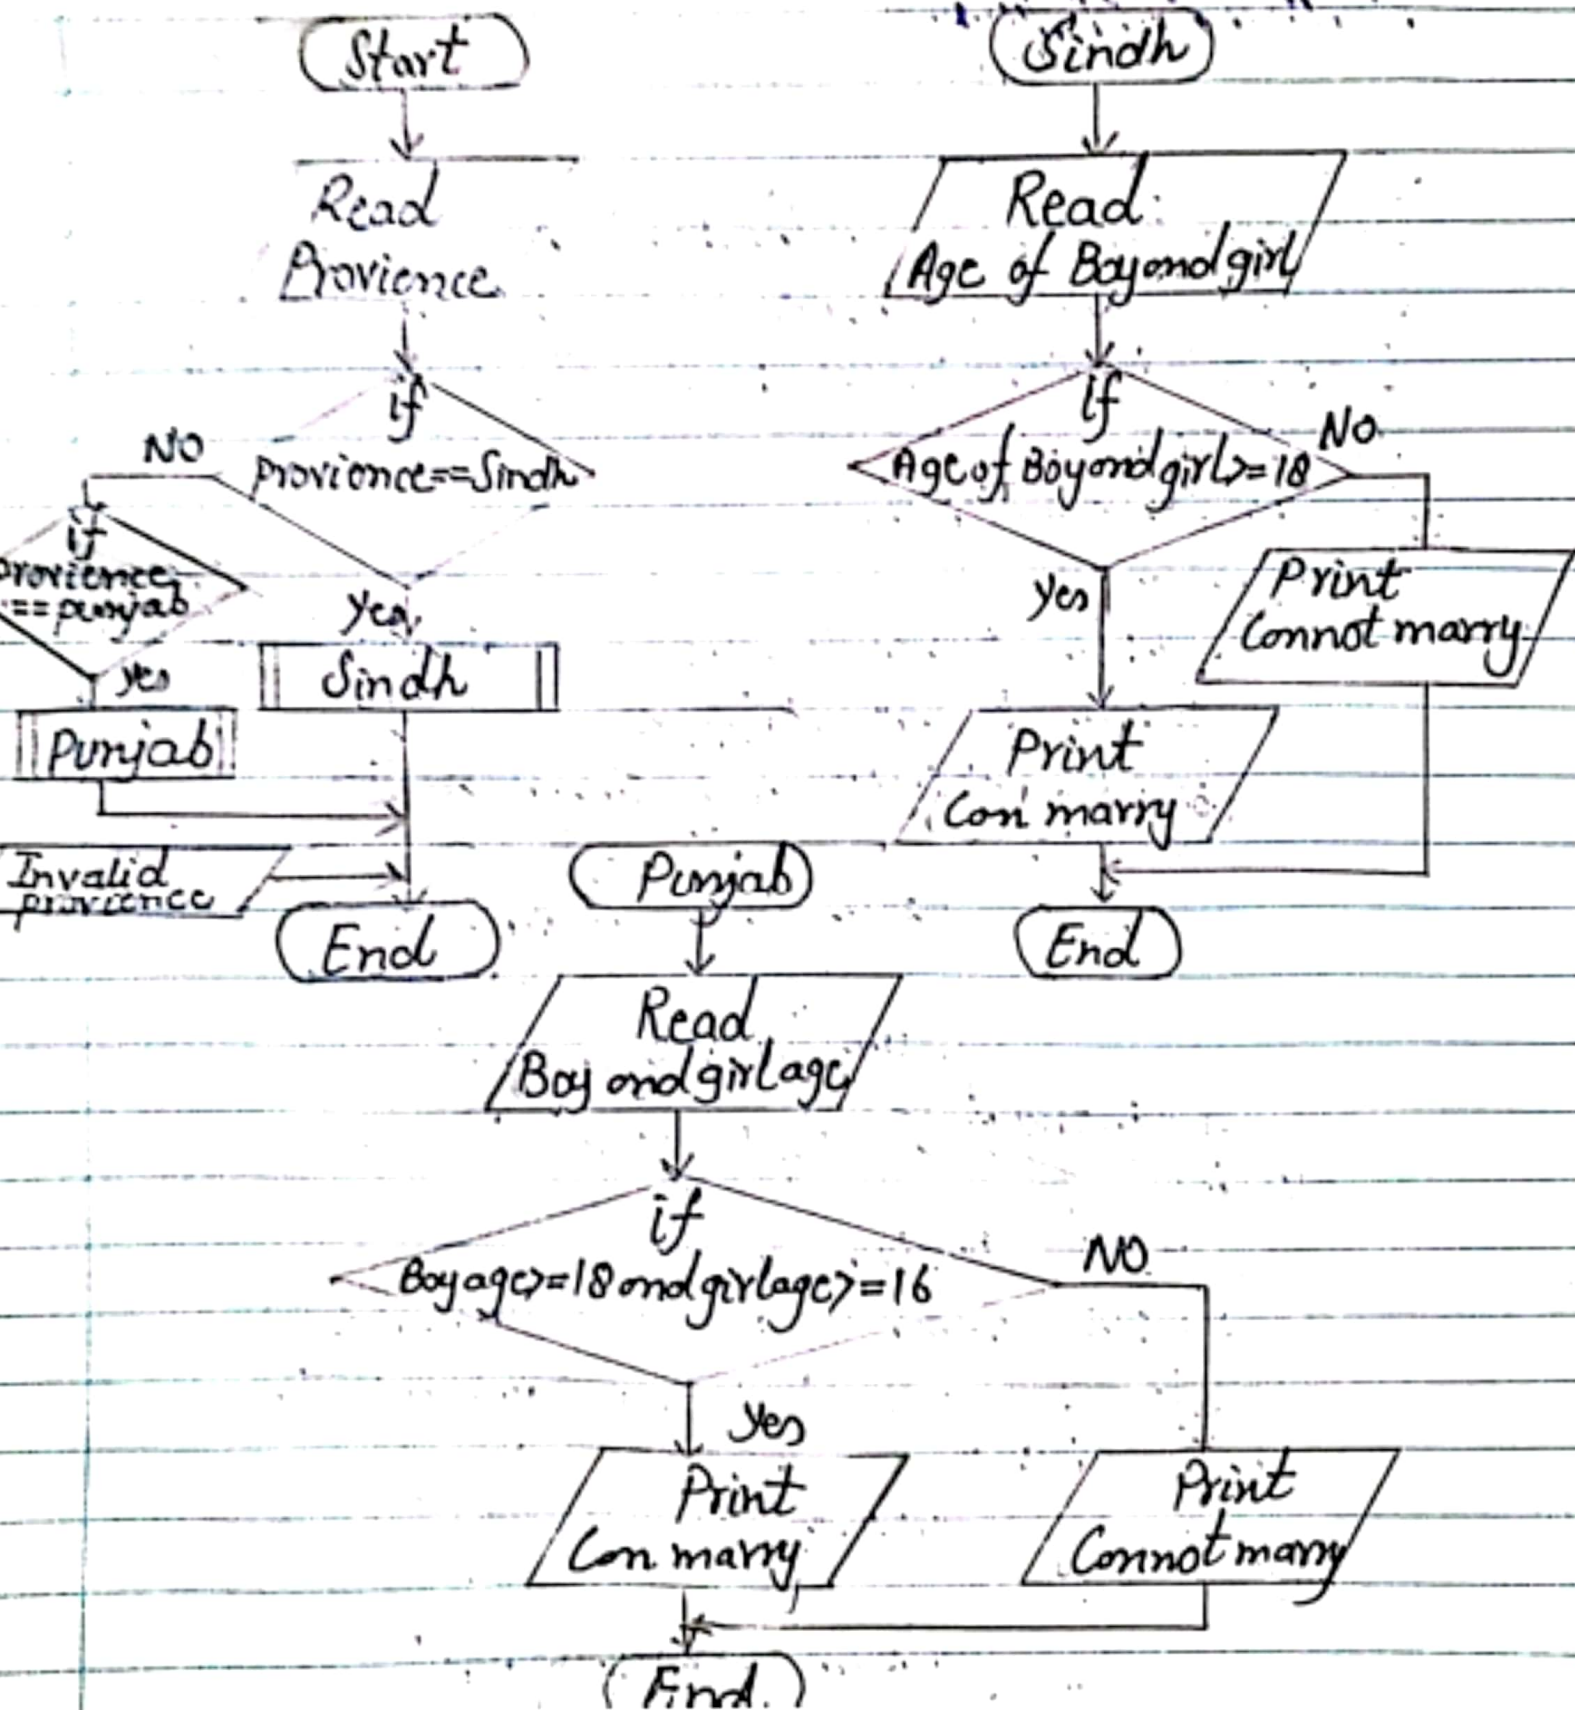 Start
Read
Provience
if
provience==Sindh
NO
if
provience
==punjab
yes
Punjab
yes
Sindh
Invalid
provience
End
Sindh
Read
Age of Boy and girl
if
Age of Boy and girl>=18
NO
yes
Print
Cannot marry
Print
Can marry
End
Punjab
Read
Boy and girl age
if
Boy age>=18 and girl age>=16
NO
yes
Print
Can marry
Print
Cannot marry
End